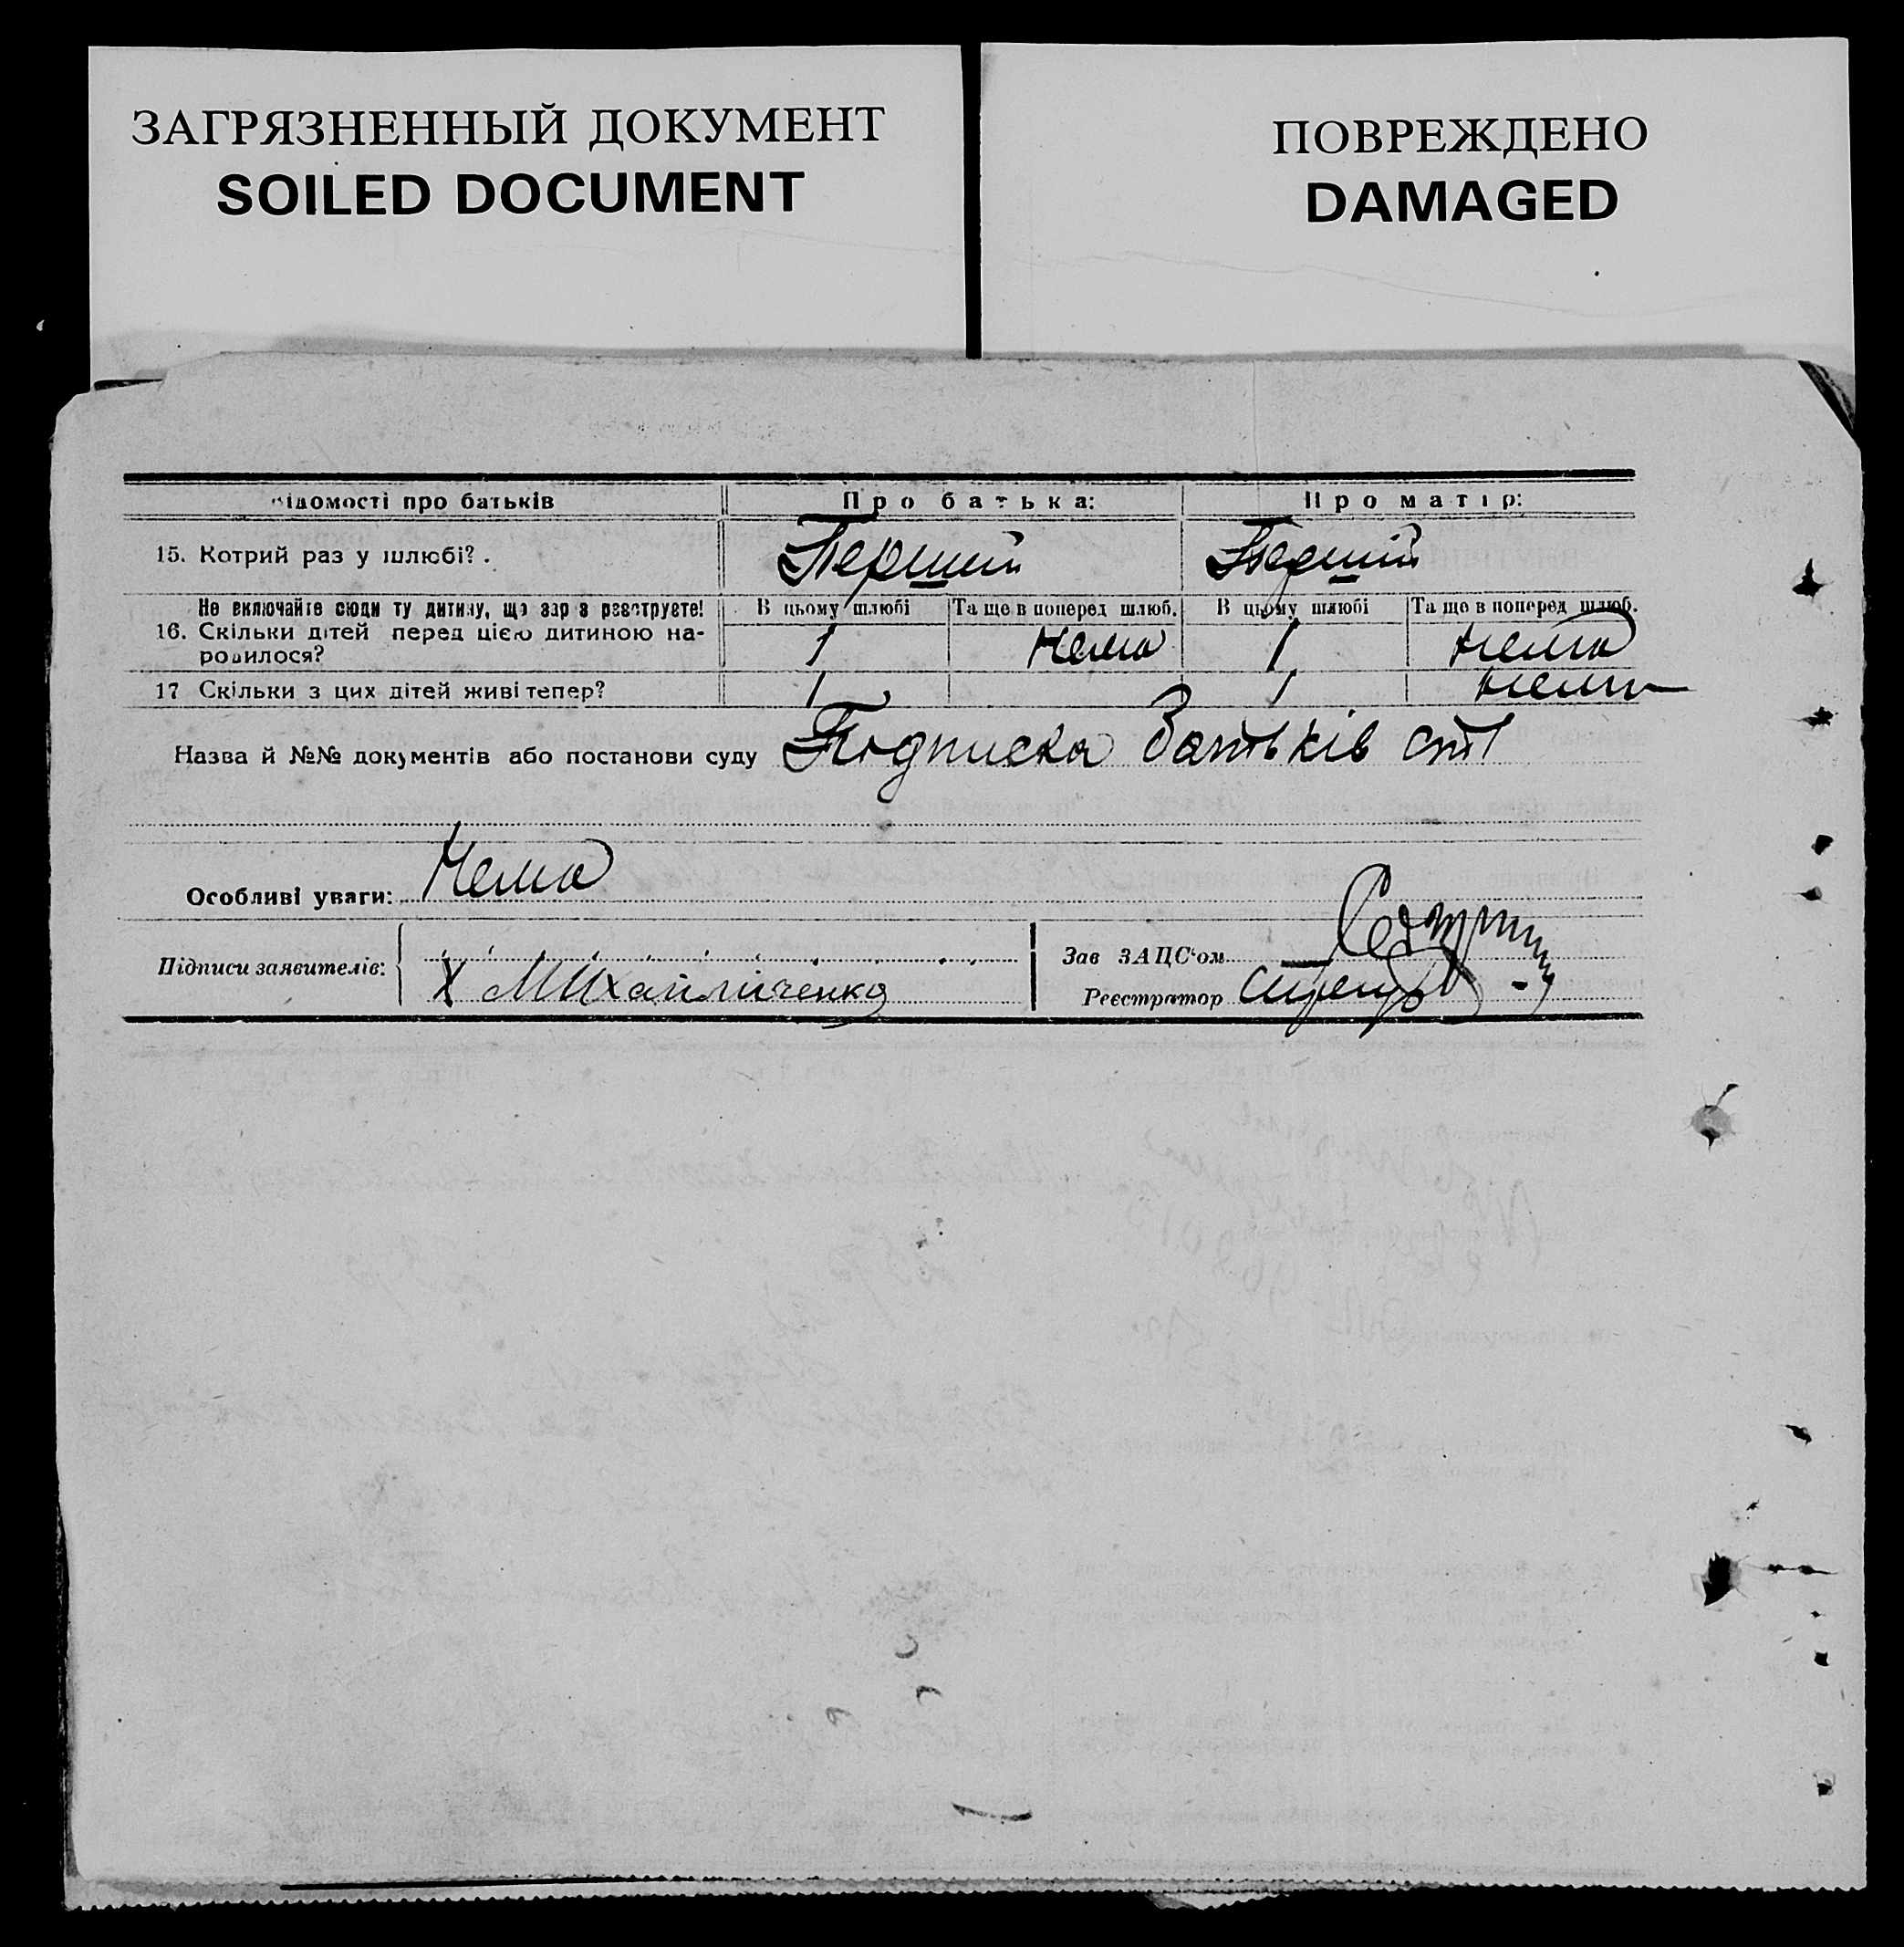 ЗАГРЯЗНЕННЫЙ ДОКУМЕНТ
SOILED DOCUMENT
ПОВРЕЖДЕНО
DAMAGED
ідомості про батьків Про батька: Про матір:
15. Котрий раз у шлюбі? . Перший Перший
Не включайте сюди ту дитину, що зараз реєструєте! В цьому шлюбі Та ще в поперед шлюб. В цьому шлюбі Та ще в поперед шлюб.
16. Скільки дітей перед цією дитиною на- 1 Нема 1 Нема
родилося?
17 Скільки з цих дітей живі тепер? 1 1 Нема
Назва й №№ документів або постанови суду Подписка батьків
Особливі уваги: Нема
Підписи заявителів: Зав ЗАЦС'ом
Х Михайличенко Реєстратор